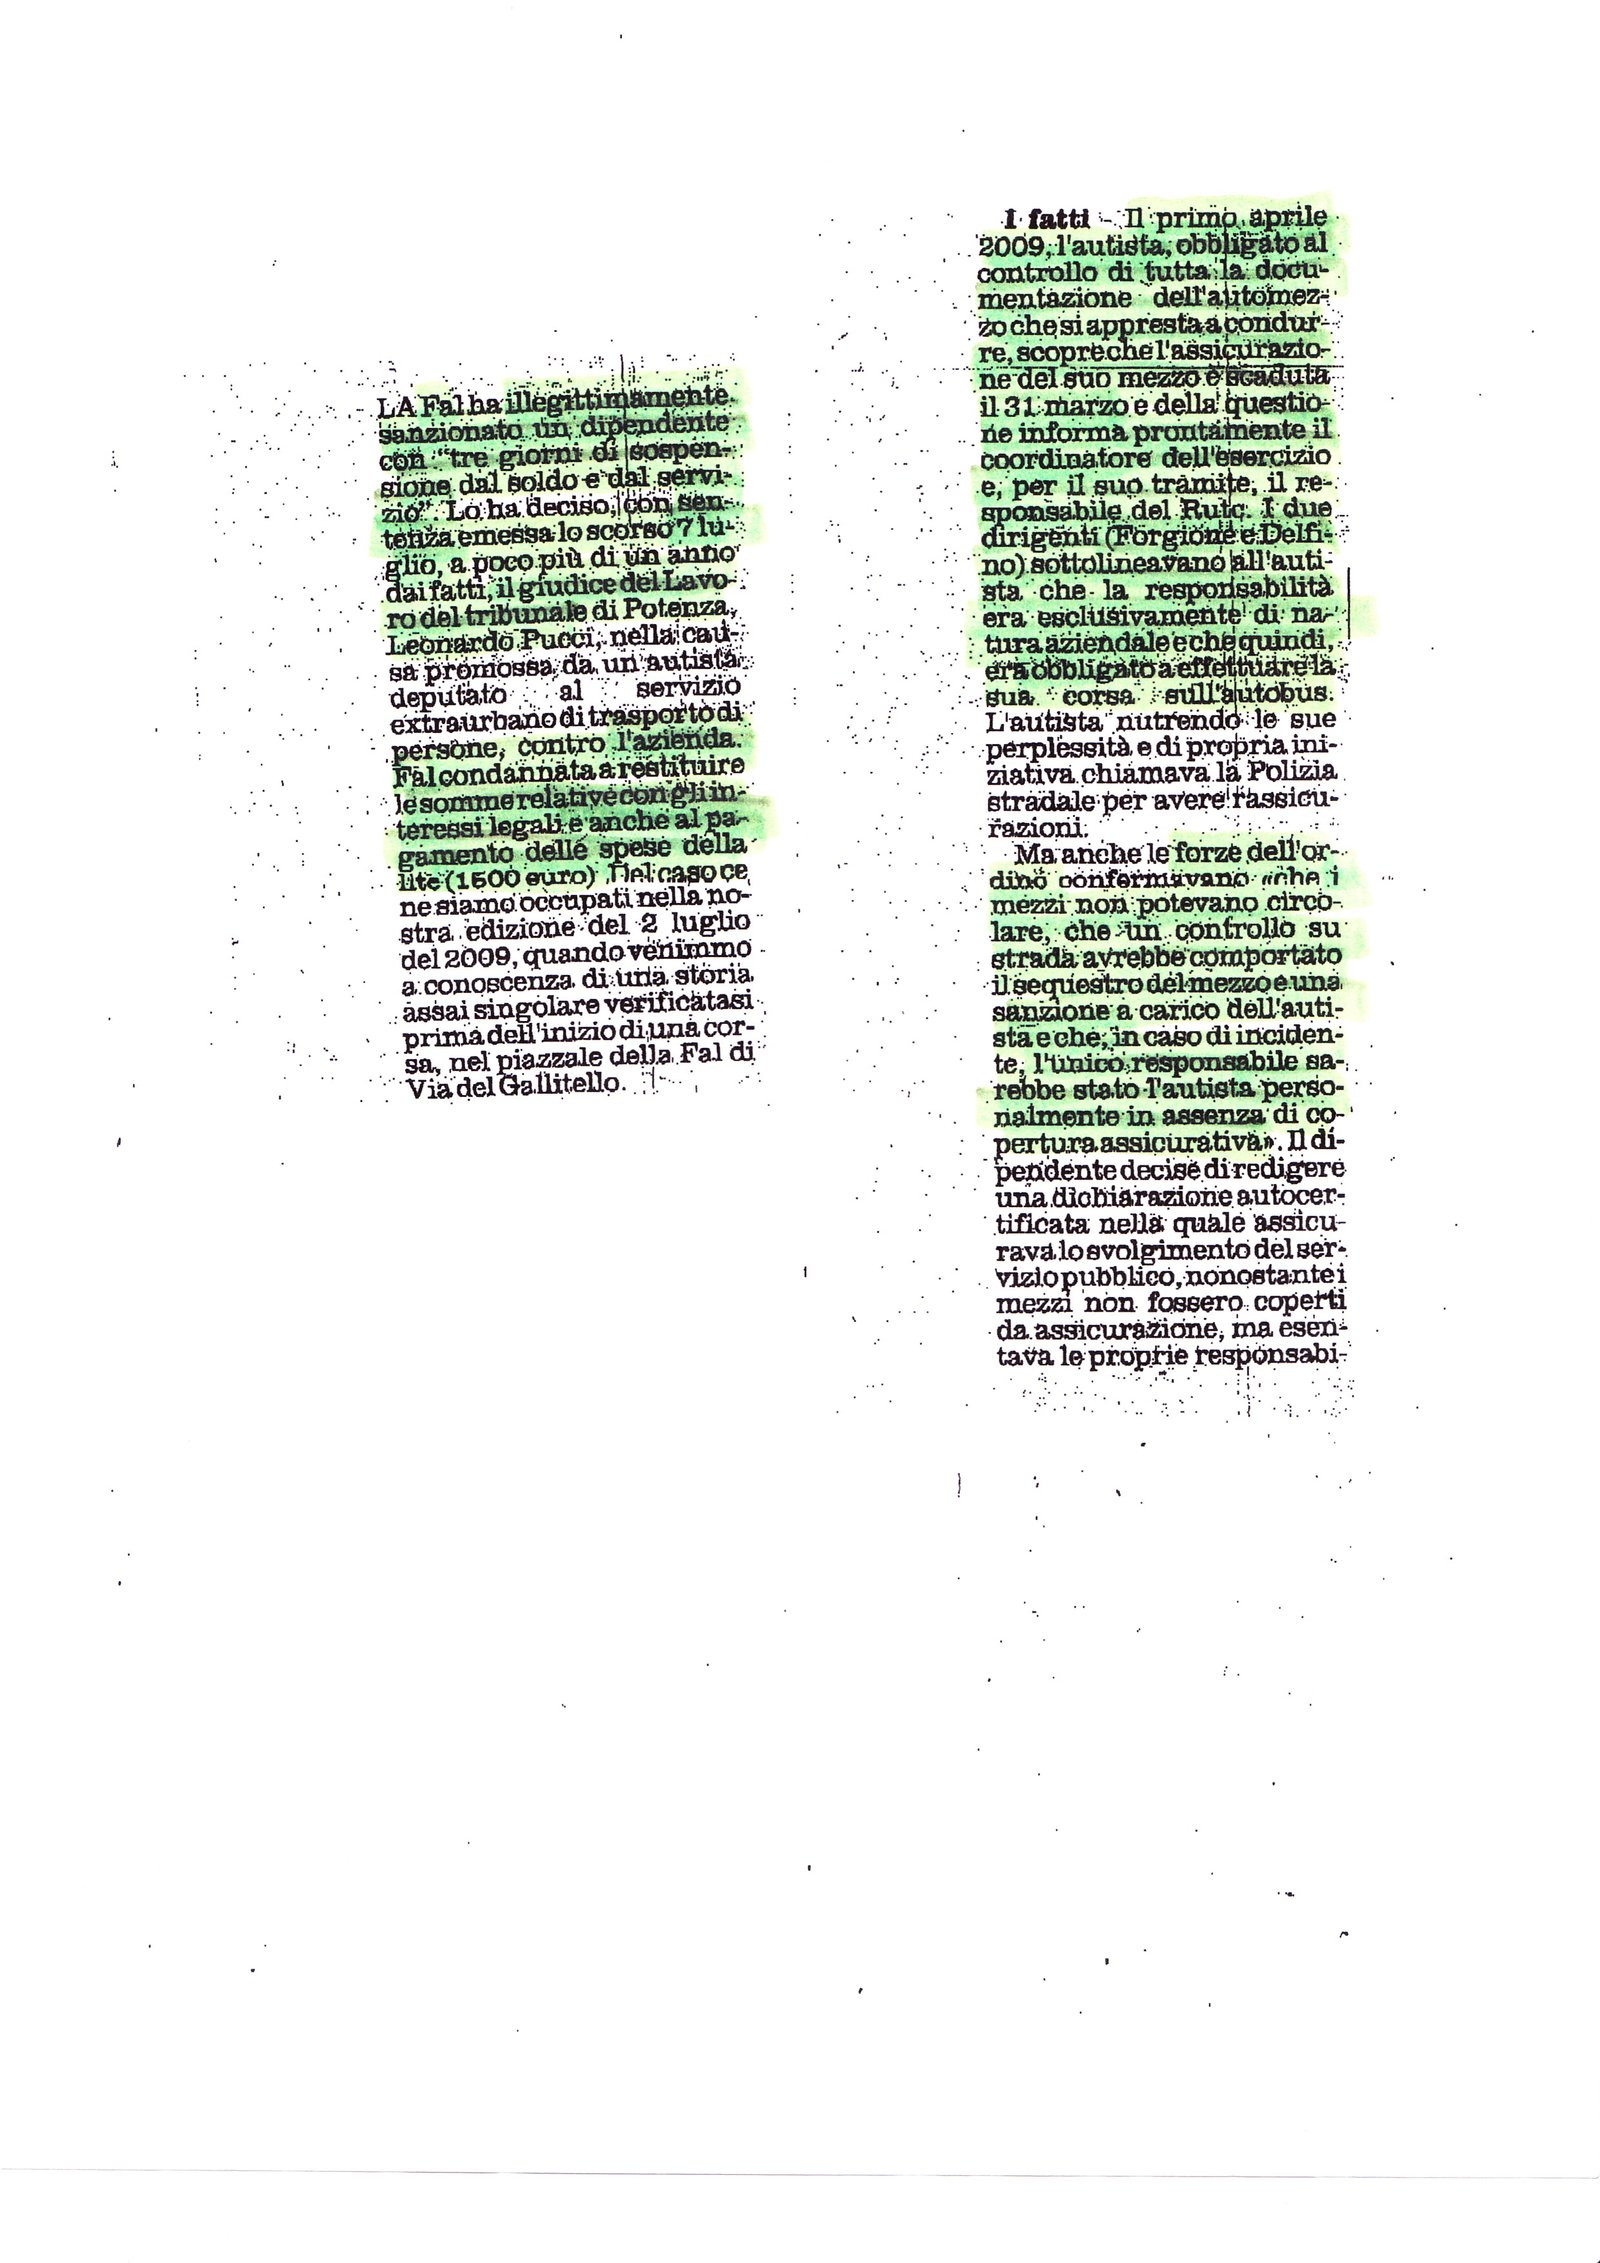 LA Fal ha illegittimamente
sanzionato un dipendente
con "tre giorni di sospen-
sione dal soldo e dal servi-
zio". Lo ha deciso, con sen-
tenza emessa lo scorso 7 lu-
glio, a poco più di un anno
dai fatti, il giudice del Lavo-
ro del tribunale di Potenza,
Leonardo Pucci, nella cau-
sa promossa da un autista
deputato al servizio
extraurbano di trasporto di
persone, contro l'azienda.
Fal condannata a restituire
le somme relative con gli in-
teressi legali e anche al pa-
gamento delle spese della
lite (1500 euro) Del caso ce
ne siamo occupati nella no-
stra edizione del 2 luglio
del 2009, quando venimmo
a conoscenza di una storia
assai singolare verificatasi
prima dell'inizio di una cor-
sa, nel piazzale della Fal di
Via del Gallitello.
I fatti - Il primo aprile
2009, l'autista, obbligato al
controllo di tutta la docu-
mentazione dell'automez-
zo che si appresta a condur-
re, scopre che l'assicurazio-
ne del suo mezzo è scaduta
il 31 marzo e della questio-
ne informa prontamente il
coordinatore dell'esercizio
e, per il suo tramite, il re-
sponsabile del Rutc. I due
dirigenti (Forgione e Delfi-
no) sottolineavano all'auti-
sta che la responsabilità
era esclusivamente di na-
tura aziendale e che quindi,
era obbligato a effettuare la
sua corsa sull'autobus.
L'autista nutrendo le sue
perplessità e di propria ini-
ziativa chiamava la Polizia
stradale per avere rassicu-
razioni.
Ma anche le forze dell'or-
dine confermavano «che i
mezzi non potevano circo-
lare, che un controllo su
strada avrebbe comportato
il sequestro del mezzo e una
sanzione a carico dell'auti-
sta e che, in caso di inciden-
te, l'unico responsabile sa-
rebbe stato l'autista perso-
nalmente in assenza di co-
pertura assicurativa». Il di-
pendente decise di redigere
una dichiarazione autocer-
tificata nella quale assicu-
rava lo svolgimento del ser-
vizio pubblico, nonostante i
mezzi non fossero coperti
da assicurazione, ma esen-
tava le proprie responsabi-